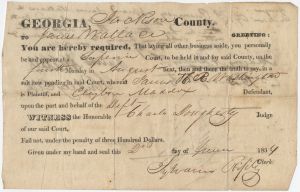 GEORGIA, Jackson County.
TO James Wallace GREETING:
You are hereby required, That laying all other business aside, you personally
be and appear at a Superior Court, to be held in and for said County, on the
Monday in August next, then and there the truth to say, in a
suit now pending in said Court, wherein
is Plaintiff, and Clayton Maddox Defendant,
upon the part and behalf of the Deft
WITNESS the Honorable Charles Dougherty Judge
of our said Court,
Fail not, under the penalty of three Hundred Dollars.
Given under my hand and seal this day of 1834
Sylvanus Ripley Clerk